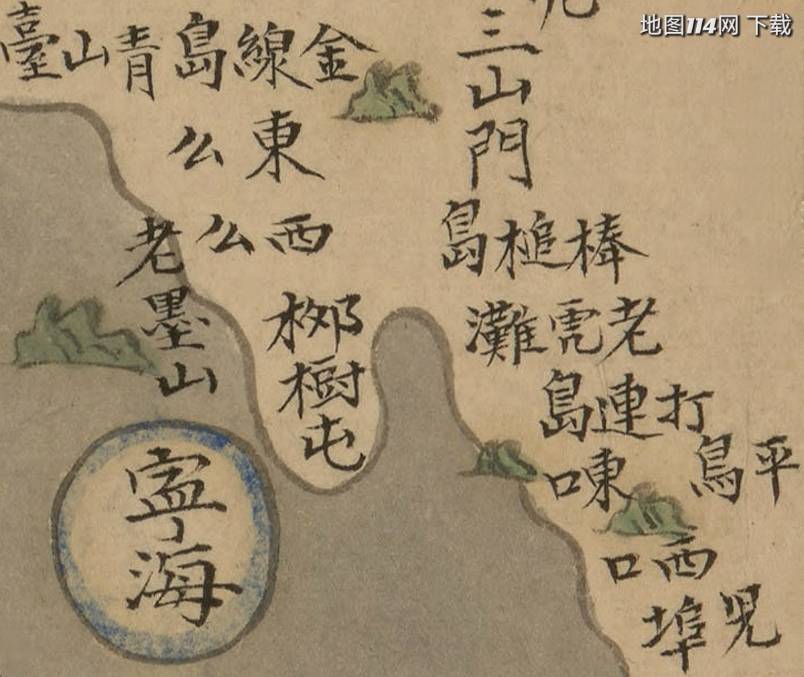 地图114网 下载
三山門
金線島
青山臺
東么
西么
老墨山
柳樹屯
棒槌島
老虎灘
打連島
平島
東口
西口
埠
寧海